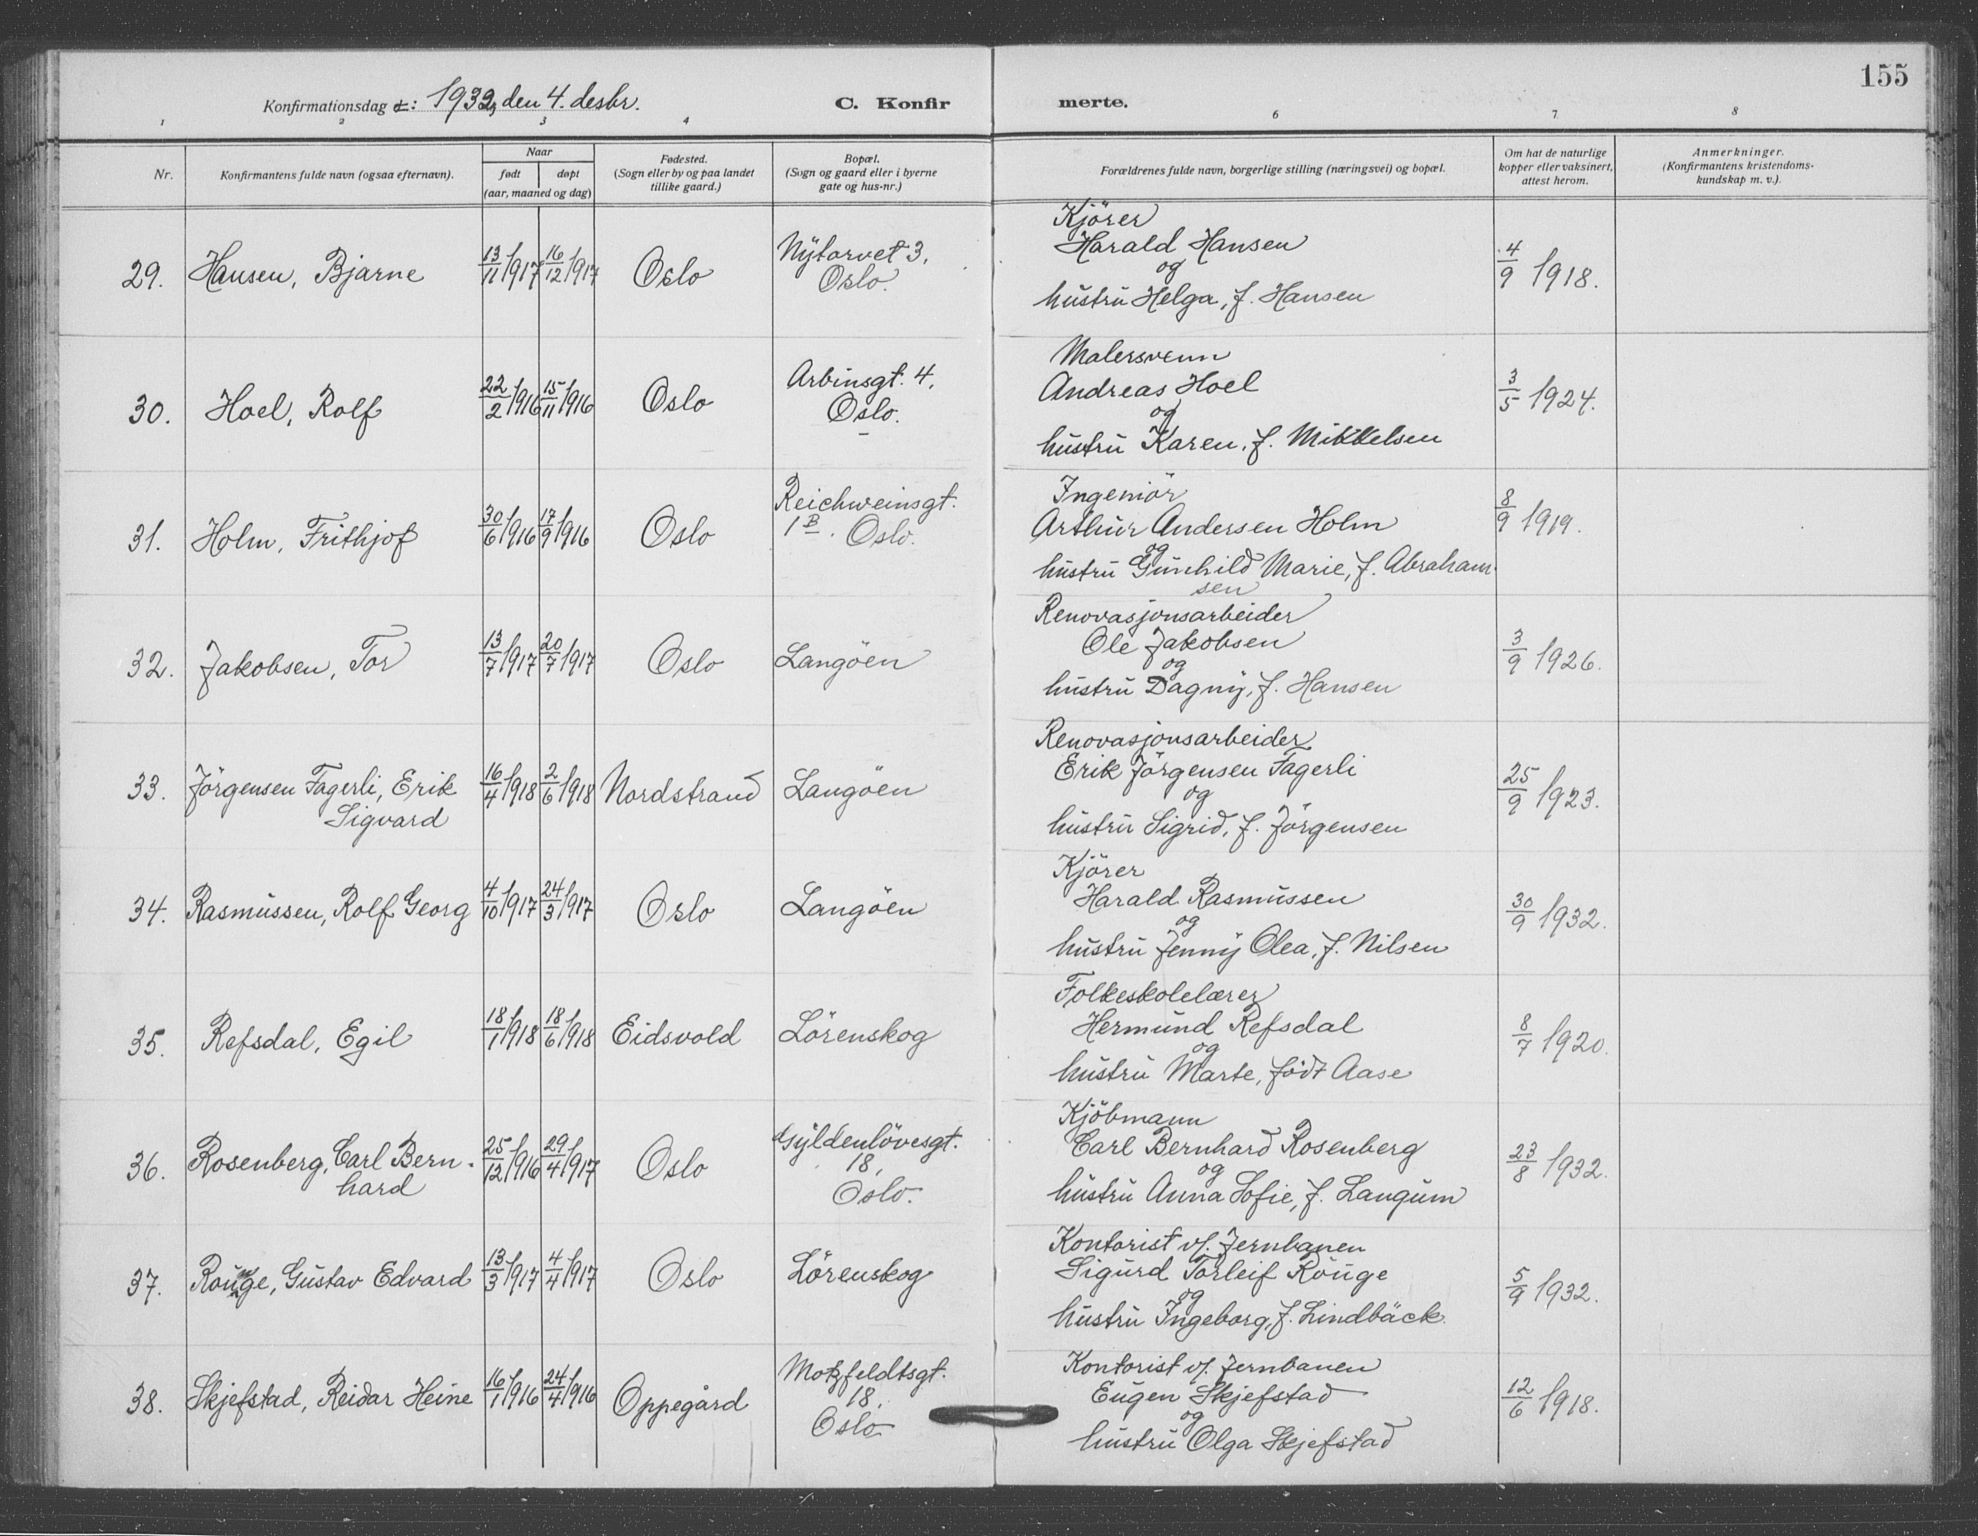 155
Konfirmationsdag d.: 1932, den 4. desbr. C. Konfir merte.
1 2 3 4 6 7 8
Nr.
Konfirmantens fulde navn (ogsaa efternavn).
Naar
født døpt
(aar, maaned og dag)
Fødested.
(Sogn eller by og paa landet
tillike gaard.)
Bopæl.
(Sogn og gaard eller i byerne
gate og hus-nr.)
Forældrenes fulde navn, borgerlige stilling (næringsvei) og bopæl.
Om hat de naturlige
kopper eller vaksinert,
attest herom.
Anmerkninger.
(Konfirmantens kristendoms-
kundskap m. v.).
29. Hansen, Bjarne 13/11 1917 16/12 1917 Oslo
Nytorvet 3,
Oslo.
Kjörer
Harald Hansen
og
hustru Helga, f. Hansen
4/9 1918.
30. Hoel, Rolf 22/2 1916 15/11 1916 Oslo
Arbinsgt. 4,
Oslo.
Malersvenn
Andreas Hoel
og
hustru Karen, f. Mikkelsen
3/5 1924.
31. Holm, Frithjof 30/6 1916 17/9 1916 Oslo
Reichweinsgt.
1B. Oslo.
Ingeniör
Arthur Andersen Holm
og
hustru Gunhild Marie, f. Abraham-
sen
8/9 1919.
32. Jakobsen, Tor 13/7 1917 20/7 1917 Oslo Langöen
Renovasjonsarbeider
Ole Jakobsen
og
hustru Dagny, f. Hansen
3/9 1926.
33. Jörgensen Fagerli, Erik
Sigvard
16/4 1918 2/6 1918 Nordstrand Langöen
Renovasjonsarbeider
Erik Jörgensen Fagerli
og
hustru Sigrid, f. Jörgensen
25/9 1923.
34. Rasmussen, Rolf Georg 4/10 1917 24/3 1917 Oslo Langöen
Kjörer
Harald Rasmussen
og
hustru Jenny Olea, f. Nilsen
30/9 1932.
35. Refsdal, Egil 18/1 1918 18/6 1918 Eidsvold Lörenskog
Folkeskolelærer
Hermund Refsdal
og
hustru Marte, født Aase
8/7 1920.
36. Rosenberg, Carl Bern-
hard
25/12 1916 29/4 1917 Oslo
Gyldenlövesgt.
18,
Oslo.
Kjöbmann
Carl Bernhard Rosenberg
og
hustru Anna Sofie, f. Langum
23/8 1932.
37. Rouge, Gustav Edvard 13/3 1917 4/4 1917 Oslo Lörenskog
Kontorist v/. Jernbanen
Sigurd Torleif Rouge
og
hustru Ingeborg, f. Lindbäck.
5/9 1932.
38. Skjefstad, Reidar Heine 16/1 1916 24/4 1916 Oppegård
Motzfeldtsgt.
18,
Oslo
Kontorist v/. Jernbanen
Eugen Skjefstad
og
hustru Olga Skjefstad
12/6 1918.